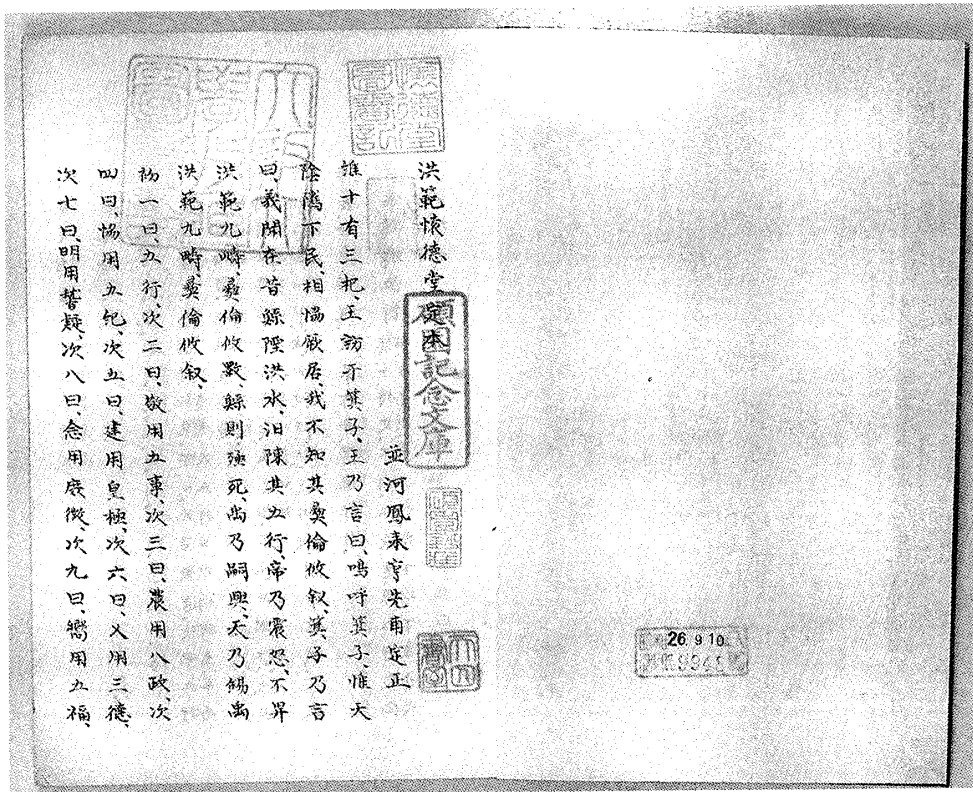 洪範懐德堂定本
碩園記念文庫
並河鳳来亨先甫定正
惟十有三祀、王訪于箕子、王乃言曰、嗚呼箕子、惟天
陰隲下民、相恊厥居、我不知其彝倫攸叙、箕子乃言
曰、我聞在昔鯀陻洪水、汨陳其五行、帝乃震怒、不畀
洪範九疇、彝倫攸斁、鯀則殛死、禹乃嗣興、天乃錫禹
洪範九疇、彝倫攸叙、
初一曰、五行、次二曰、敬用五事、次三曰、農用八政、次
四曰、恊用五紀、次五曰、建用皇極、次六曰、乂用三德、
次七曰、明用稽疑、次八曰、念用庶徴、次九曰、嚮用五福、
26.9.10